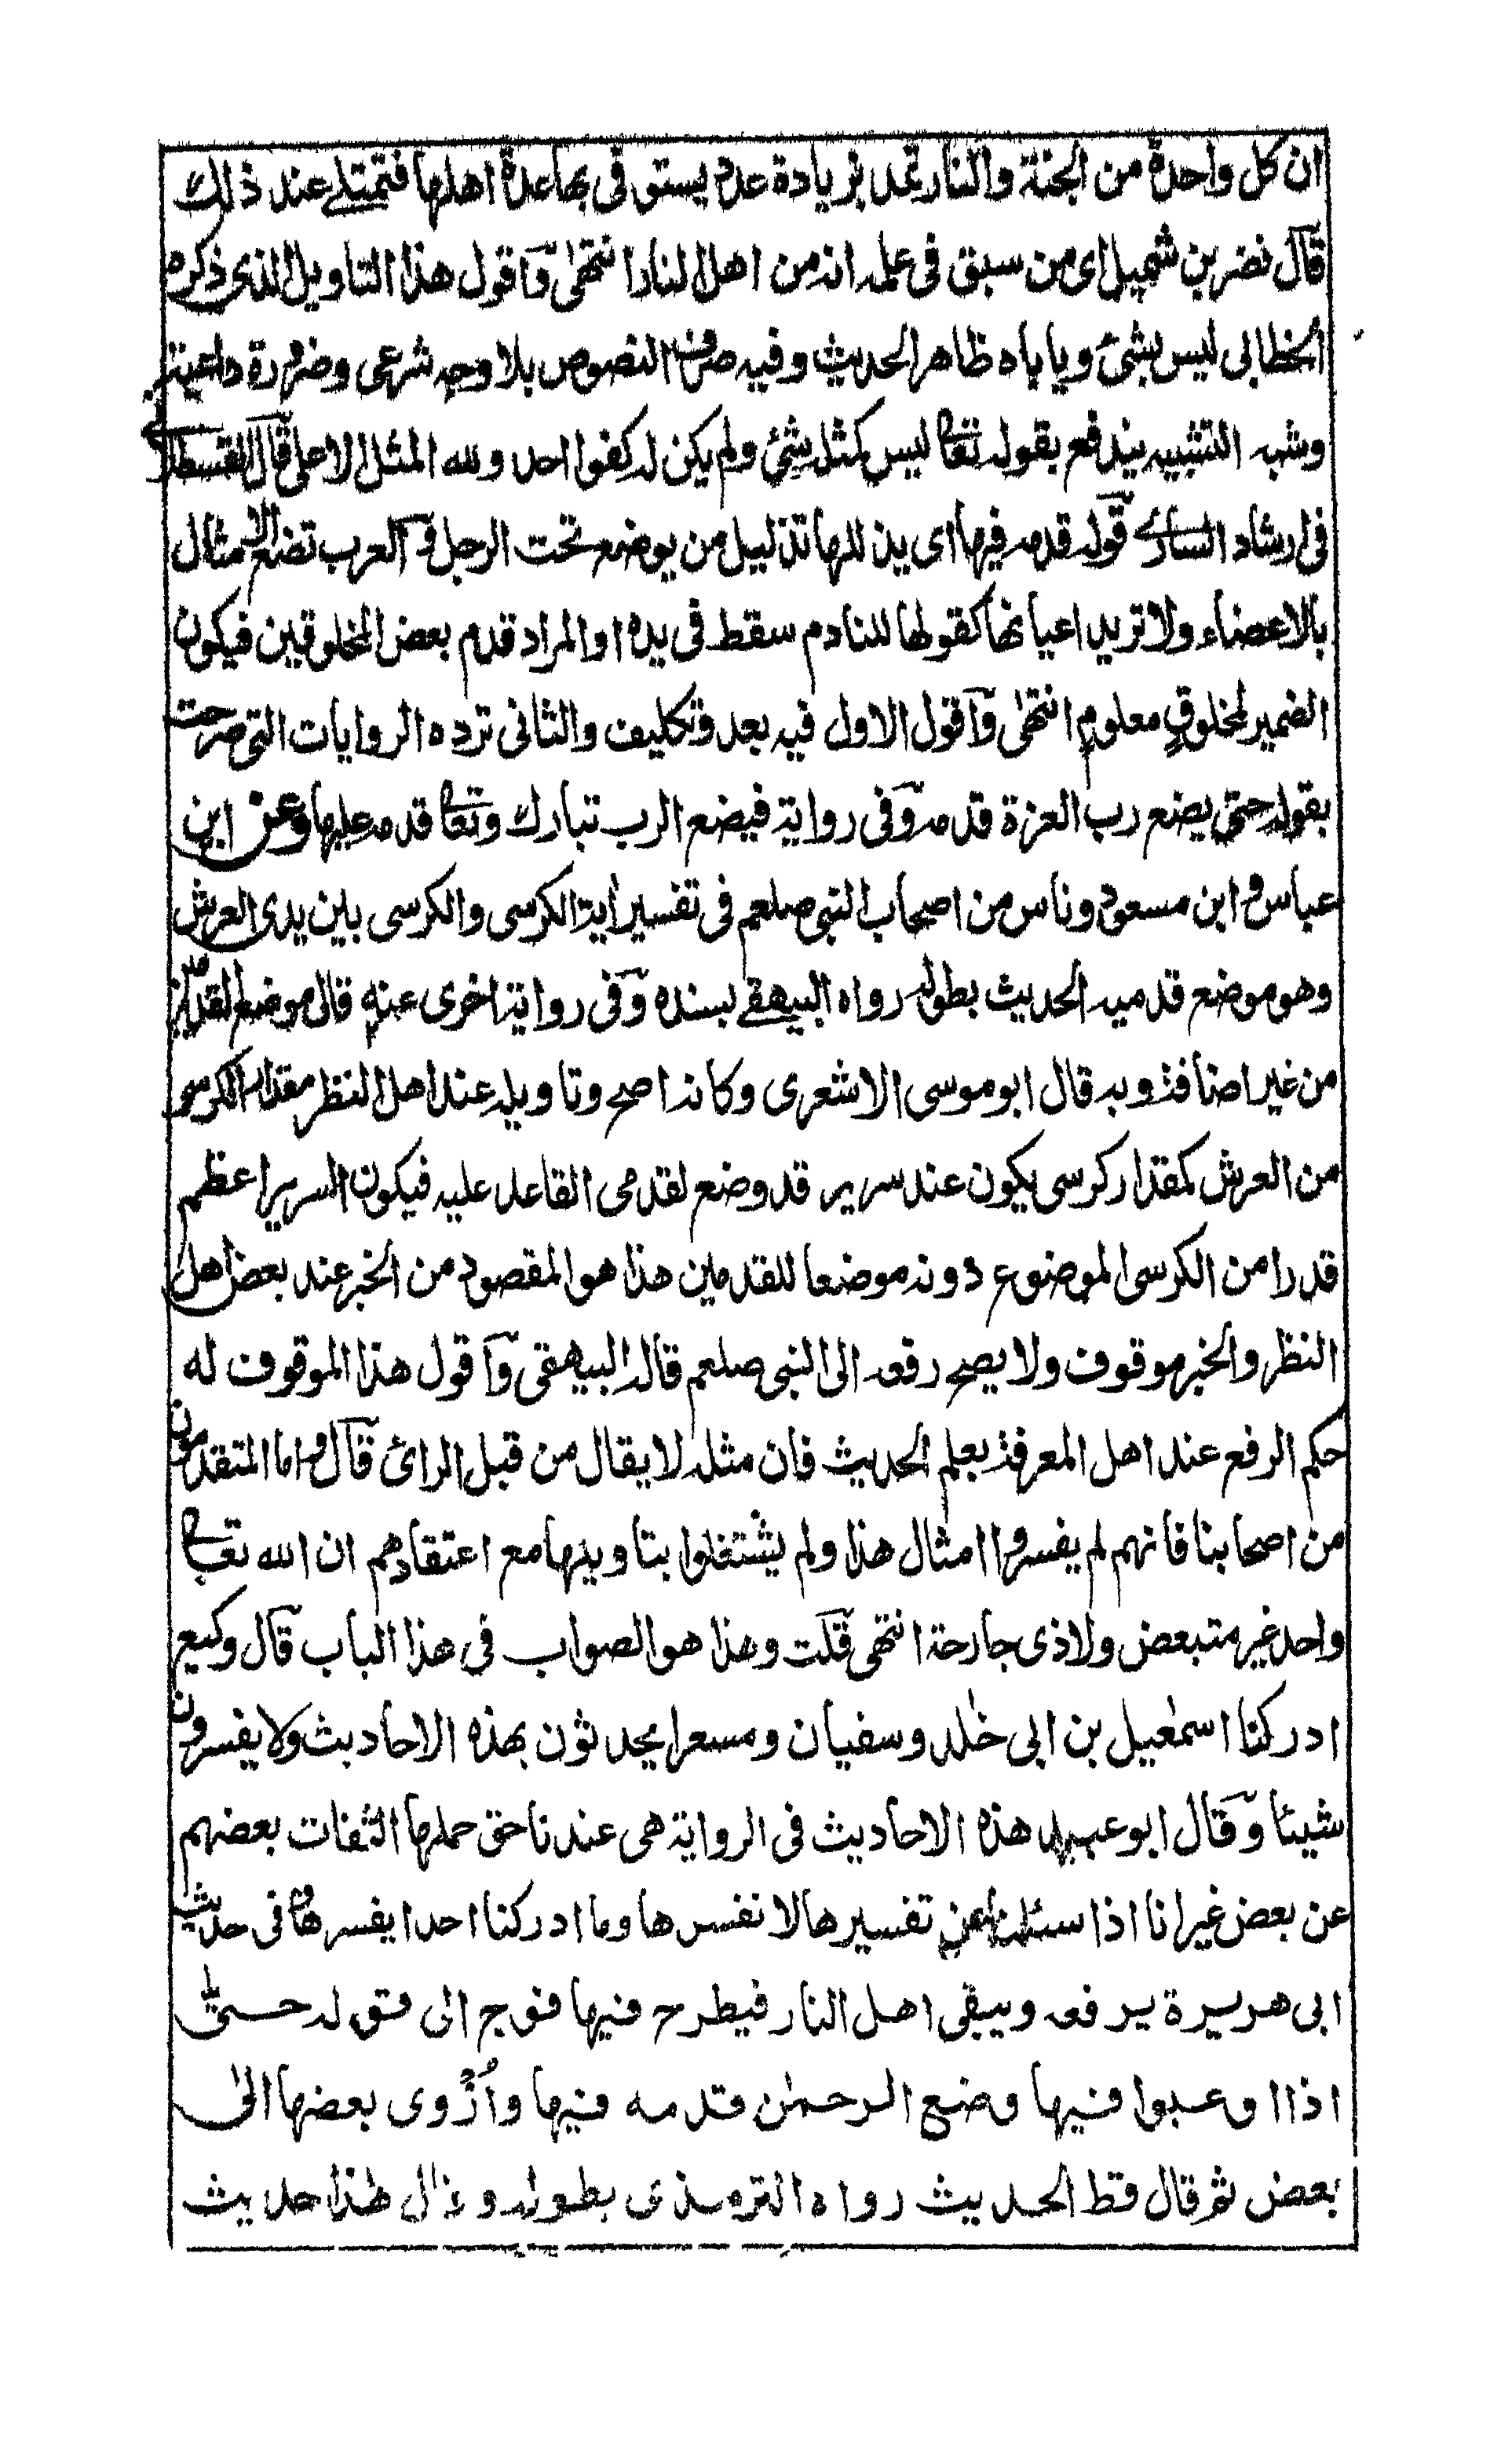 ان كل واحدة من الجنة والنار تمد بزيادة عدد يستوفى بها عدة اهلها فتمتلے عند ذلك
قال نضر بن شميل اى من سبق فى علمه انه من اهل النار انتهىٰ واقول هذا التاويل الذى ذكره
الخطابى ليس بشئ وياباه ظاهر الحديث وفيه صرف النصوص بلا وجه شرعى وضرورة داعية
وشبه التشبيه يندفع بقوله تعا ليس كمثله شئ ولم يكن له كفوا احد ولله المثل الاعلى قال القسطلانى
فى ارشاد السارے قوله قدمه فيها اى يذللها تذليل من يوضع تحت الرجل و العرب تضع الامثال
بالاعضاء ولا تريد اعيانها كقولها للنادم سقط فى يده او المراد قدم بعض المخلوقين فيكون
الضمير لمخلوق معلوم انتهىٰ واقول الاول فيه بعد وتكليف والثانى ترده الروايات التى صرحت
بقوله حتى يضع رب العزة قدمه وفى رواية فيضع الرب تبارك وتعا قدمه عليها وعن ابن
عباس و ابن مسعود وناس من اصحاب النبى صلعم فى تفسير اية الكرسى والكرسى بين يدى العرش
وهو موضع قدميه الحديث بطوله رواه البيهقے بسنده وفى رواية اخرى عنه قال موضع القدمين
من غير اضافة وبه قال ابو موسى الاشعرى وكانه اصح وتاويله عند اهل النظر مقدار الكرسى
من العرش كمقدار كرسى يكون عند سرير قد وضع لقدمى القاعد عليه فيكون السرير اعظم
قدرا من الكرسى الموضوع دونه موضعا للقدمين هذا هو المقصود من الخبر عند بعض اهل
النظر والخبر موقوف ولا يصح رفعه الى النبى صلعم قاله البيهقى واقول هذا الموقوف له
حكم الرفع عند اهل المعرفة بعلم الحديث فان مثله لا يقال من قبل الرائ قال واما المتقدمون
من اصحابنا فانهم لم يفسروا امثال هذا ولم يشتغلوا بتاويلها مع اعتقادهم ان الله تعا
واحد غير متبعض ولا ذى جارحة انتهى قلت وهذا هو الصواب فى هذا الباب قال وكيع
ادركنا اسمٰعيل بن ابى خٰلد وسفيان ومسعرا يحدثون بهذه الاحاديث ولا يفسرون
شيئا وقال ابو عبيد هذه الاحاديث فى الرواية هى عندنا حق حملها الثقات بعضهم
عن بعض غير انا اذا سئلنا عن تفسيرها لا نفسرها وما ادركنا احدا يفسرها وفى حديث
ابى هريرة يرفعه ويبقى اهل النار فيطرح فيها فوج الى قوله حتىٰ
اذا اوعبوا فيها وضع الرحمٰن قدمه فيها وأُزْوى بعضها الىٰ
بعض ثم قال قط الحديث رواه الترمذى بطوله وقال هٰذا حديث